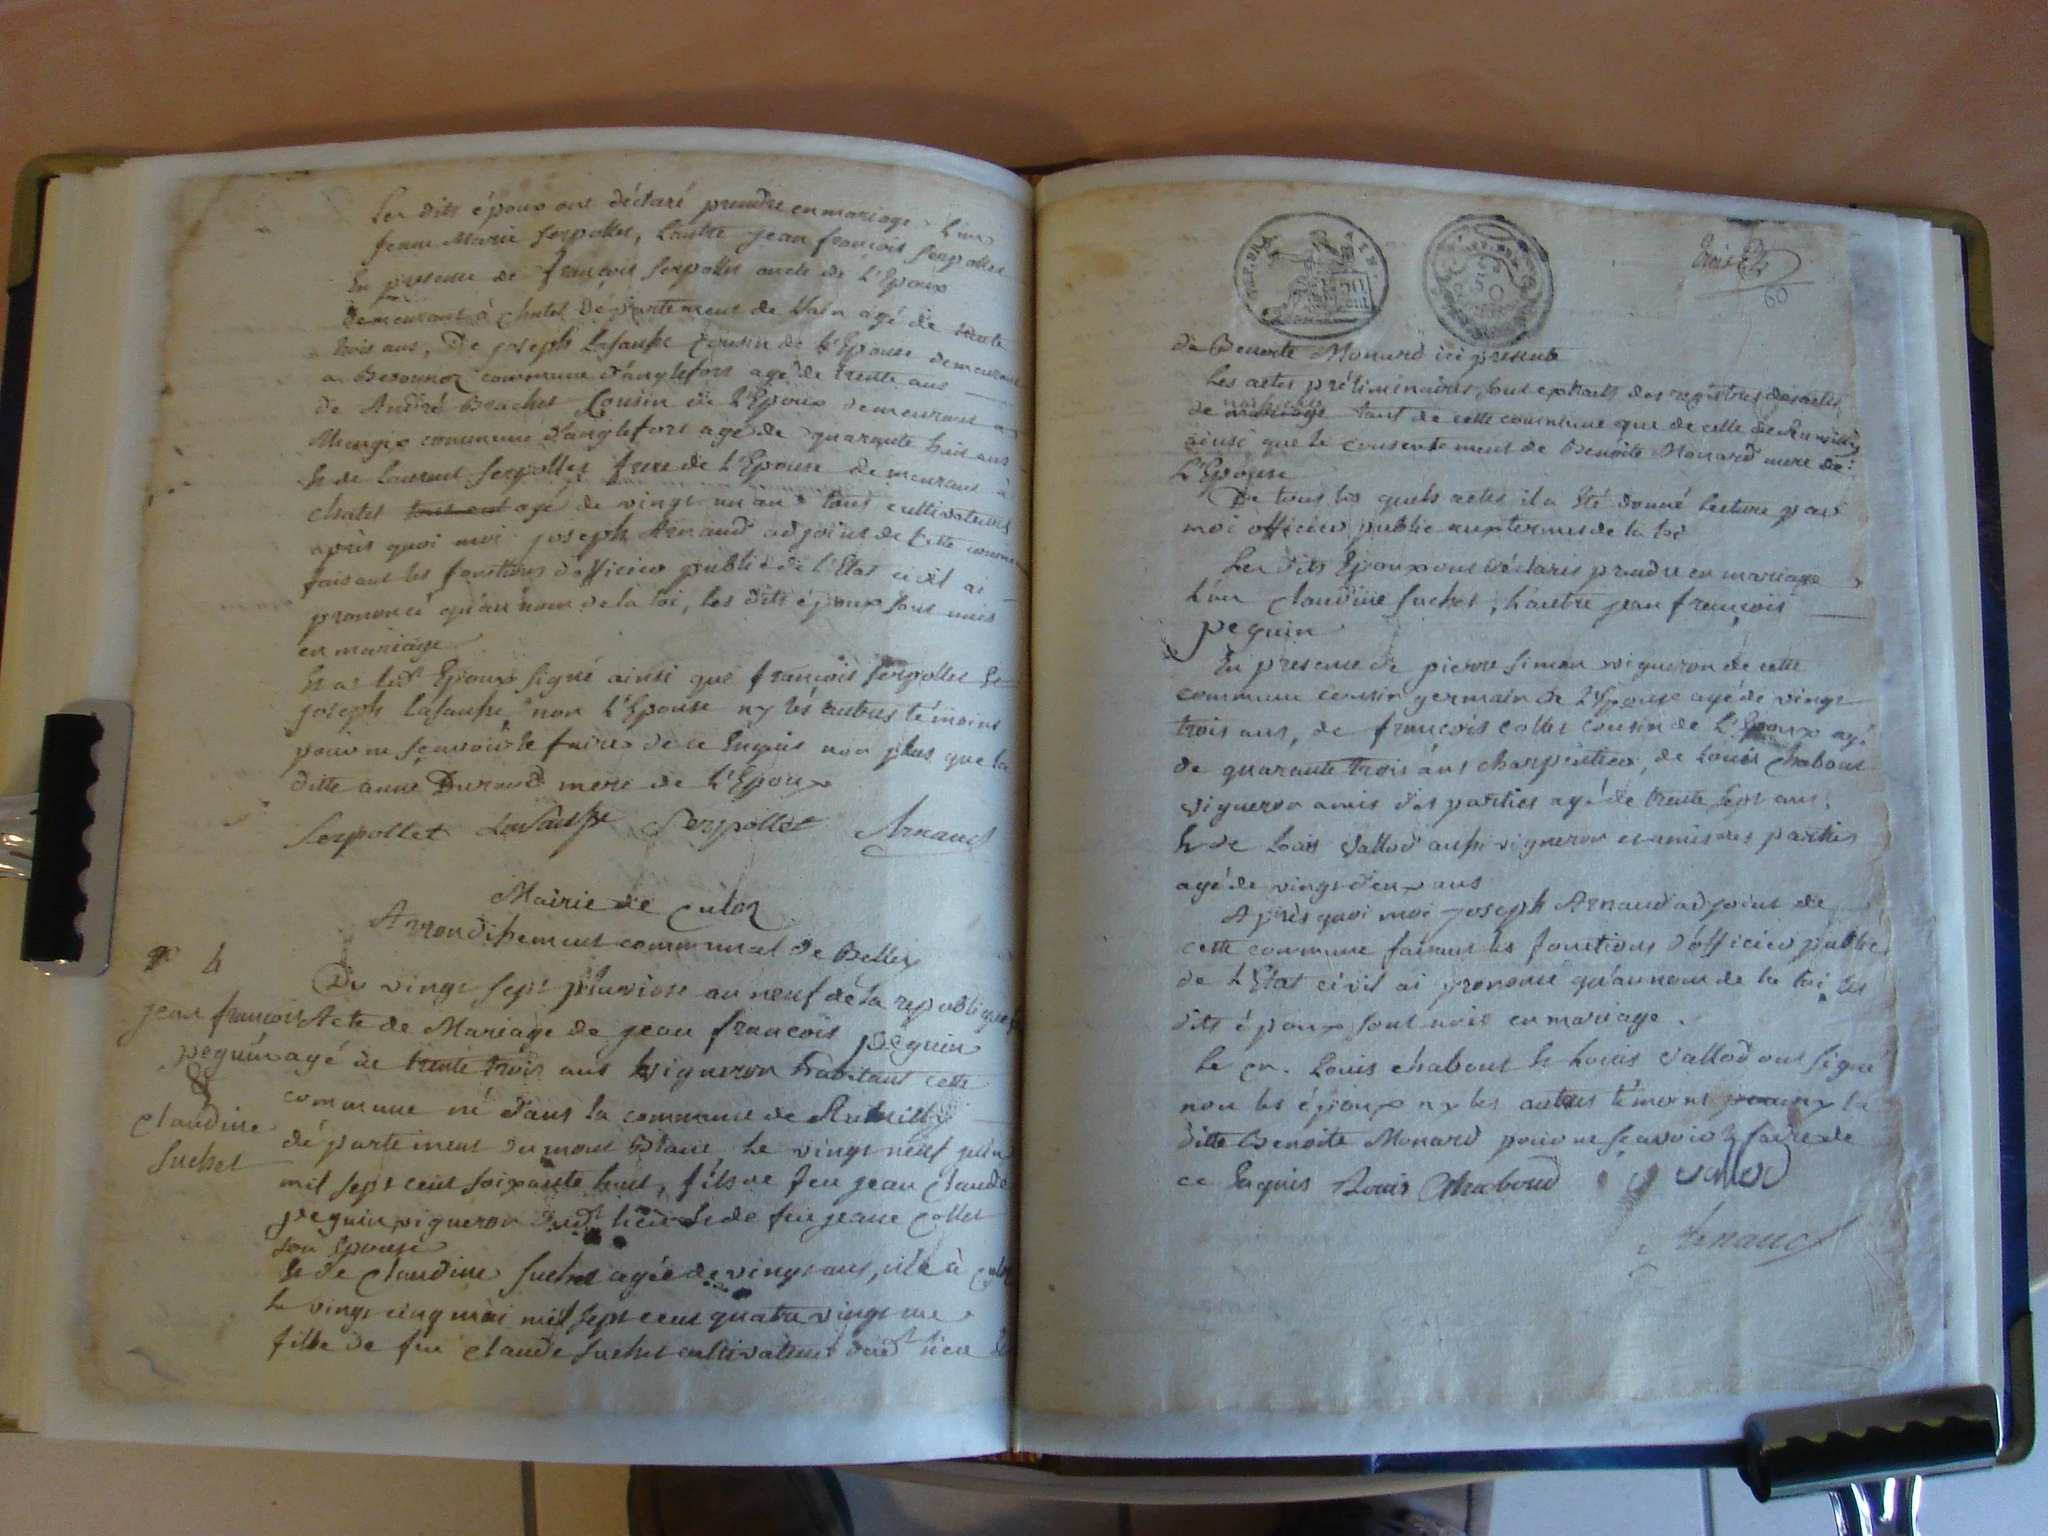 Les dits époux ont déclaré prendre en mariage L'un
jeanne Marie Serpollet, L'autre jean françois Serpollet
En presence de françois Serpollet oncle de L'Epoux
demeurant à Chatel Département de L'ain agé de trente
trois ans, De joseph Lasausse Cousin de L'Epouse demeurant
a commune d'anglefort agé de trente ans
de André Cousin de L'Epoux demeurant a
commune d'anglefort agé de quarante huit ans
Et de Laurent Serpollet frere de L'Epouse demeurant à
chatel agé de vingt un ans tous cultivateurs
après quoi moi joseph Arnaud adjoint de Cette commune
faisant les fonctions d'officier public de L'Etat civil ai
prononcé qu'au nom de la loi, les dits époux sont unis
en mariage
Et a led.t Epoux signé ainsi que françois Serpollet Et
joseph Lasausse, non L'Epouse ny les autres témoins
pour ne sçavoir le faire de ce Enquis non plus que la
ditte anne Durand mere de L'Epoux
Serpollet Lasausse Serpollet Arnaud
Mairie de Culoz
Arrondissement communal de Belley
4
jean françois
peguin
&
Claudine
Suchet
Du vingt sept pluviose an neuf de la republique
Acte de Mariage de jean françois peguin
agé de trente trois ans vigneron habitant cette
commune né dans la commune de Rumilly
département du mont Blanc le vingt neuf juin
mil sept cent soixante huit, fils de feu jean Claude
peguin vigneron dud.t lieu Et de feu jeanne Collet
son Epouse
Et de Claudine Suchet agée de vingt ans, née à Culoz
le vingt cinq mai mil sept cent quatre vingt une
fille de feu Claude Suchet cultivateur dud.t lieu Et
60
de Benoite Monard ici presente
Les actes préliminaires sont extraits des registres des actes
de mariage tant de cette commune que de celle de Rumilly
ainsi que le consentement de Benoite Monard mere de
L'Epouse
De tous les quels actes il a été donné lecture par
moi officier public aux termes de la loi
Les dits Epoux ont déclaré prendre en mariage
L'un Claudine Suchet, L'autre jean françois
peguin
En presence de pierre Simon vigneron de cette
commune cousin germain de L'Epouse agé de vingt
trois ans, de françois Collet cousin de L'Epoux agé
de quarante trois ans charpentier, de Louis Chabout
vigneron amis des parties agé de trente sept ans,
Et de Louis Vallod aussi vigneron et amis des parties
agé de vingt deux ans
Après quoi moi joseph Arnaud adjoint de
cette commune faisant les fonctions d'officier public
de L'Etat civil ai prononcé qu'au nom de la loi les
dits époux sont unis en mariage.
Le cn. Louis Chabout Et Louis Vallod ont signé
non les époux ny les autres témoins ny la
ditte Benoite Monard pour ne sçavoir faire de
ce Enquis Louis Chaboud Vallod
Arnaud